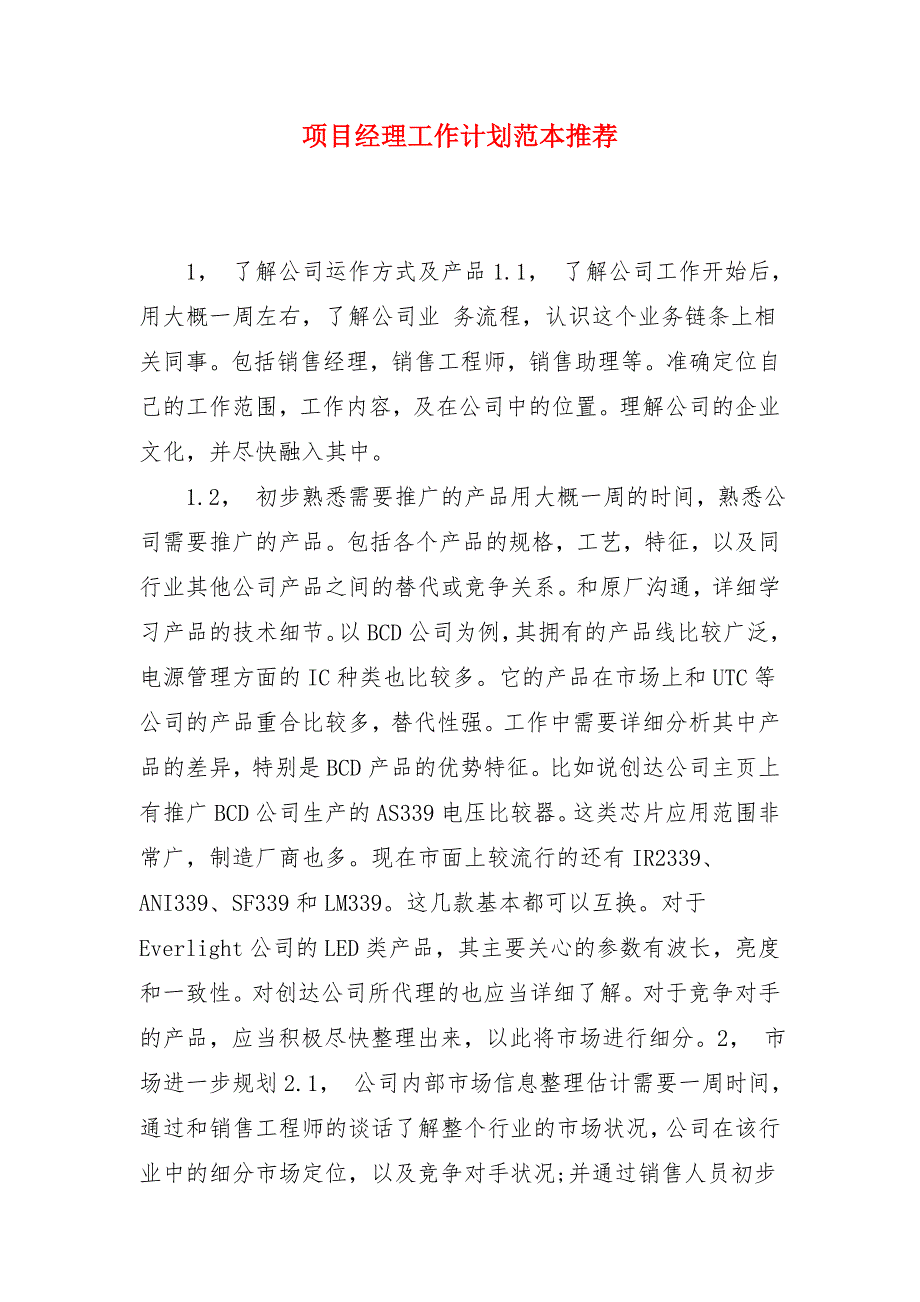 项目经理工作计划范本推荐
1， 了解公司运作方式及产品 1.1， 了解公司工作开始后，
用大概一周左右，了解公司业 务流程，认识这个业务链条上相
关同事。包括销售经理，销售工程师，销售助理等。准确定位自
己的工作范围，工作内容，及在公司中的位置。理解公司的企业
文化，并尽快融入其中。
1.2， 初步熟悉需要推广的产品用大概一周的时间，熟悉公
司需要推广的产品。包括各个产品的规格，工艺，特征，以及同
行业其他公司产品之间的替代或竞争关系。和原厂沟通，详细学
习产品的技术细节。以 BCD 公司为例，其拥有的产品线比较广泛，
电源管理方面的 IC 种类也比较多。它的产品在市场上和 UTC 等
公司的产品重合比较多，替代性强。工作中需要详细分析其中产
品的差异，特别是 BCD 产品的优势特征。比如说创达公司主页上
有推广 BCD 公司生产的 AS339 电压比较器。这类芯片应用范围非
常广，制造厂商也多。现在市面上较流行的还有 IR2339、
ANI339、SF339 和 LM339。这几款基本都可以互换。对于
Everlight 公司的 LED 类产品，其主要关心的参数有波长，亮度
和一致性。对创达公司所代理的也应当详细了解。对于竞争对手
的产品，应当积极尽快整理出来，以此将市场进行细分。2， 市
场进一步规划 2.1， 公司内部市场信息整理估计需要一周时间，
通过和销售工程师的谈话了解整个行业的市场状况，公司在该行
业中的细分市场定位，以及竞争对手状况;并通过销售人员初步